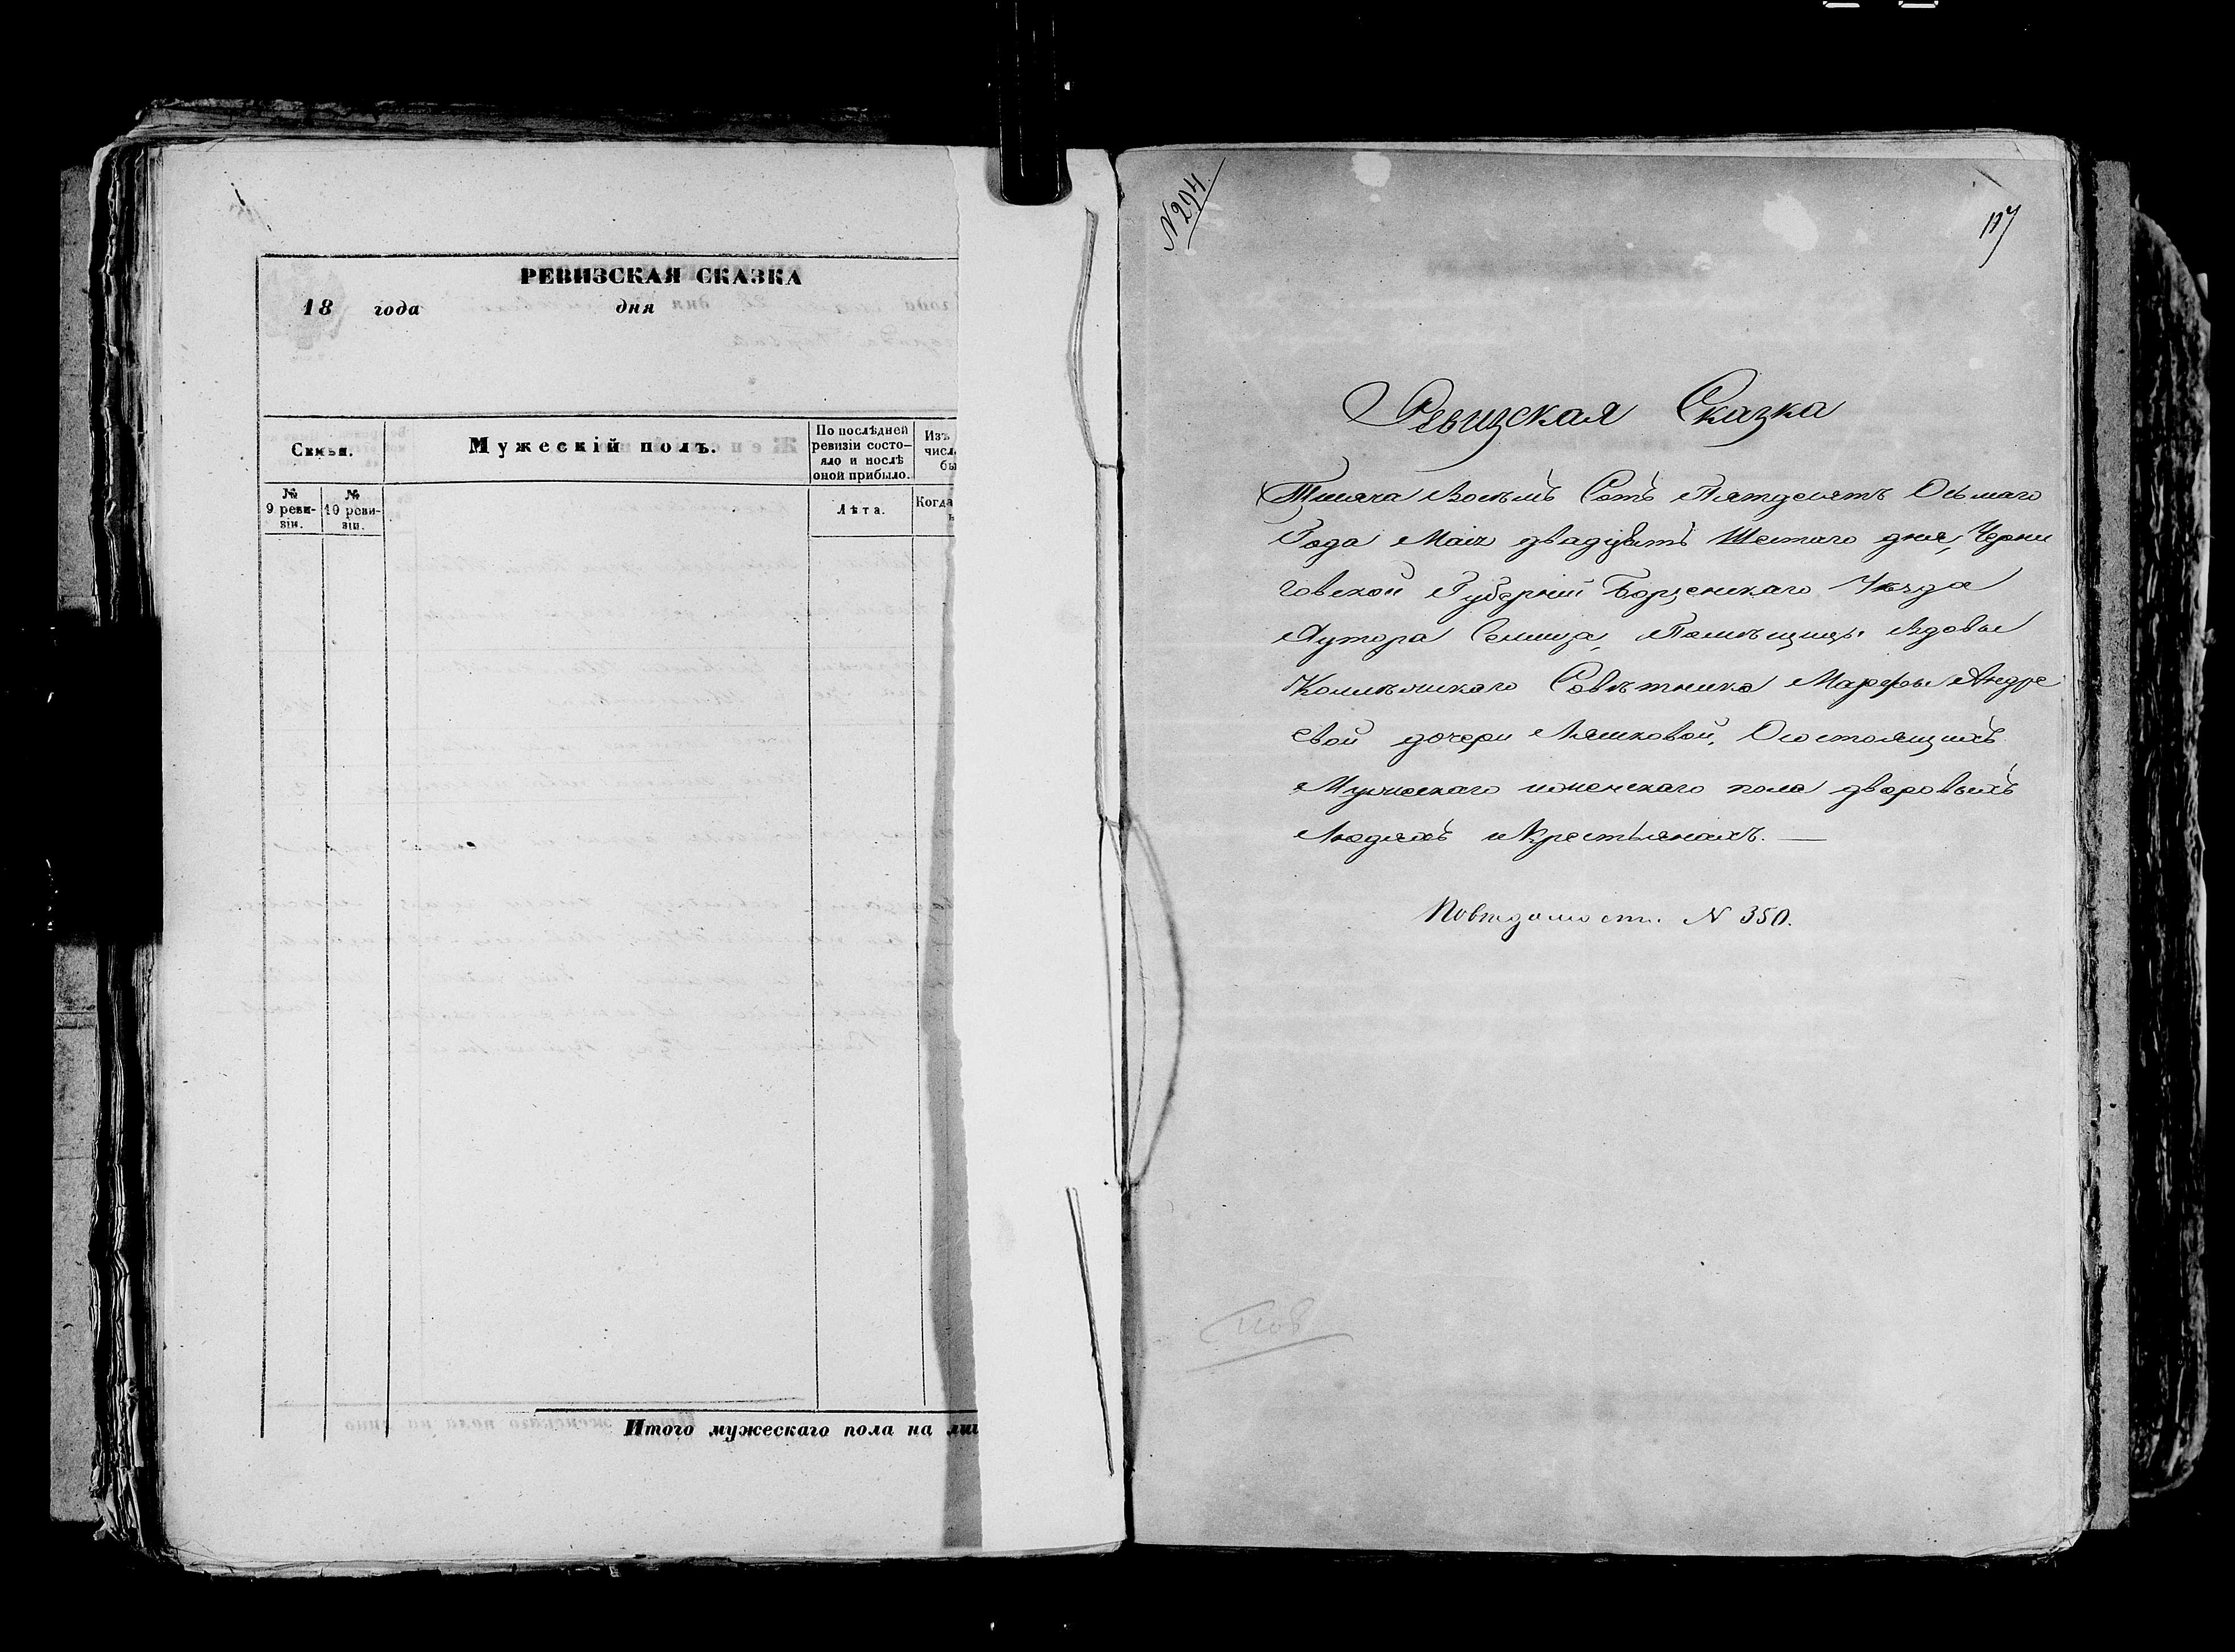 РЕВИЗСКАЯ СКАЗКА
18 года дня
Семьи.
Мужескій полъ.
По послѣдней
ревизіи состо-
яло и послѣ
оной прибыло.
Изъ
числ
бы
№
9 реви-
зіи.
№
10 реви-
зіи.
Лѣта.
Когда
Итого мужескаго пола на ли
N 294.
117
Ревизская Сказка
Тысяча Восемъ Сотъ Пятдесятъ Осьмаго
Года Маія двадцять Шестаго дня, Черни
говской Губерніи Борзенскаго Уѣзда
Хутора Помѣщицы Вдовы
Коллежскаго Совѣтника Марфы Андре
евой дочери Ляшковой, Осостоящихъ
Мужескаго иженскаго пола дворовыхъ
Людяхъ иКрестьянахъ. —
Повѣдомости. N 350.